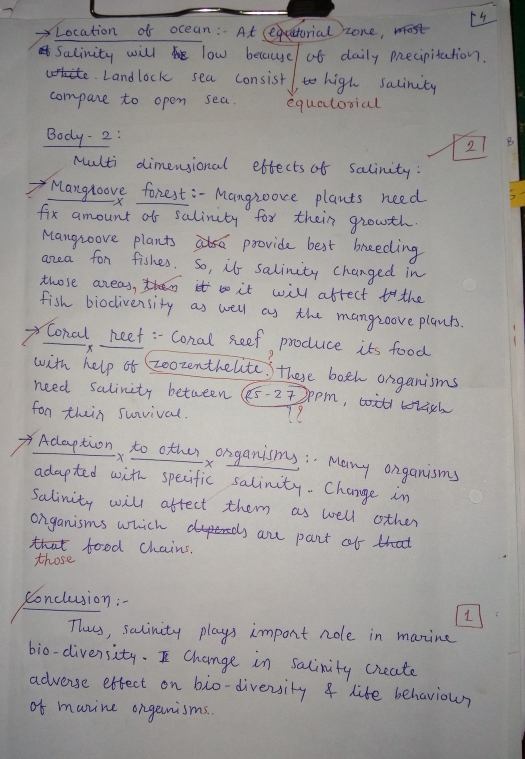 4
→ Location of ocean :- At equatorial zone, most
Salinity will be low because of daily precipitation.
white. Landlock sea consist to high salinity
compare to open sea. equatorial
Body-2 :
2
Multi dimensional effects of Salinity :
→ Mangroove forest :- Mangroove plants need
fix amount of salinity for their growth.
Mangroove plants also provide best breeding
area for fishes. So, if salinity changed in
those areas, then it it will affect the
fish biodiversity as well as the mangroove plants.
→ Coral reef :- Coral reef produce its food
with help of zoozenthelite. These both organisms
need salinity between 25-27 ppm, will which
for their survival. ??
→ Adaption to other organisms :- Many organisms
adapted with specific salinity. Change in
Salinity will affect them as well other
organisms which depends are part of that
that food chains.
those
Conclusion :-
1
Thus, salinity plays import role in marine
bio-diversity. I Change in salinity create
adverse effect on bio-diversity & life behaviour
of marine organisms.